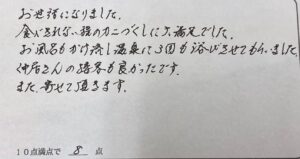 お世話になりました。
食べきれない程のカニづくしに大満足でした。
お風呂もかけ流し温泉に3回も浴びさせてもらいました。
仲居さんの接客も良かったです。
また寄せて頂きます。
10点満点で 8 点